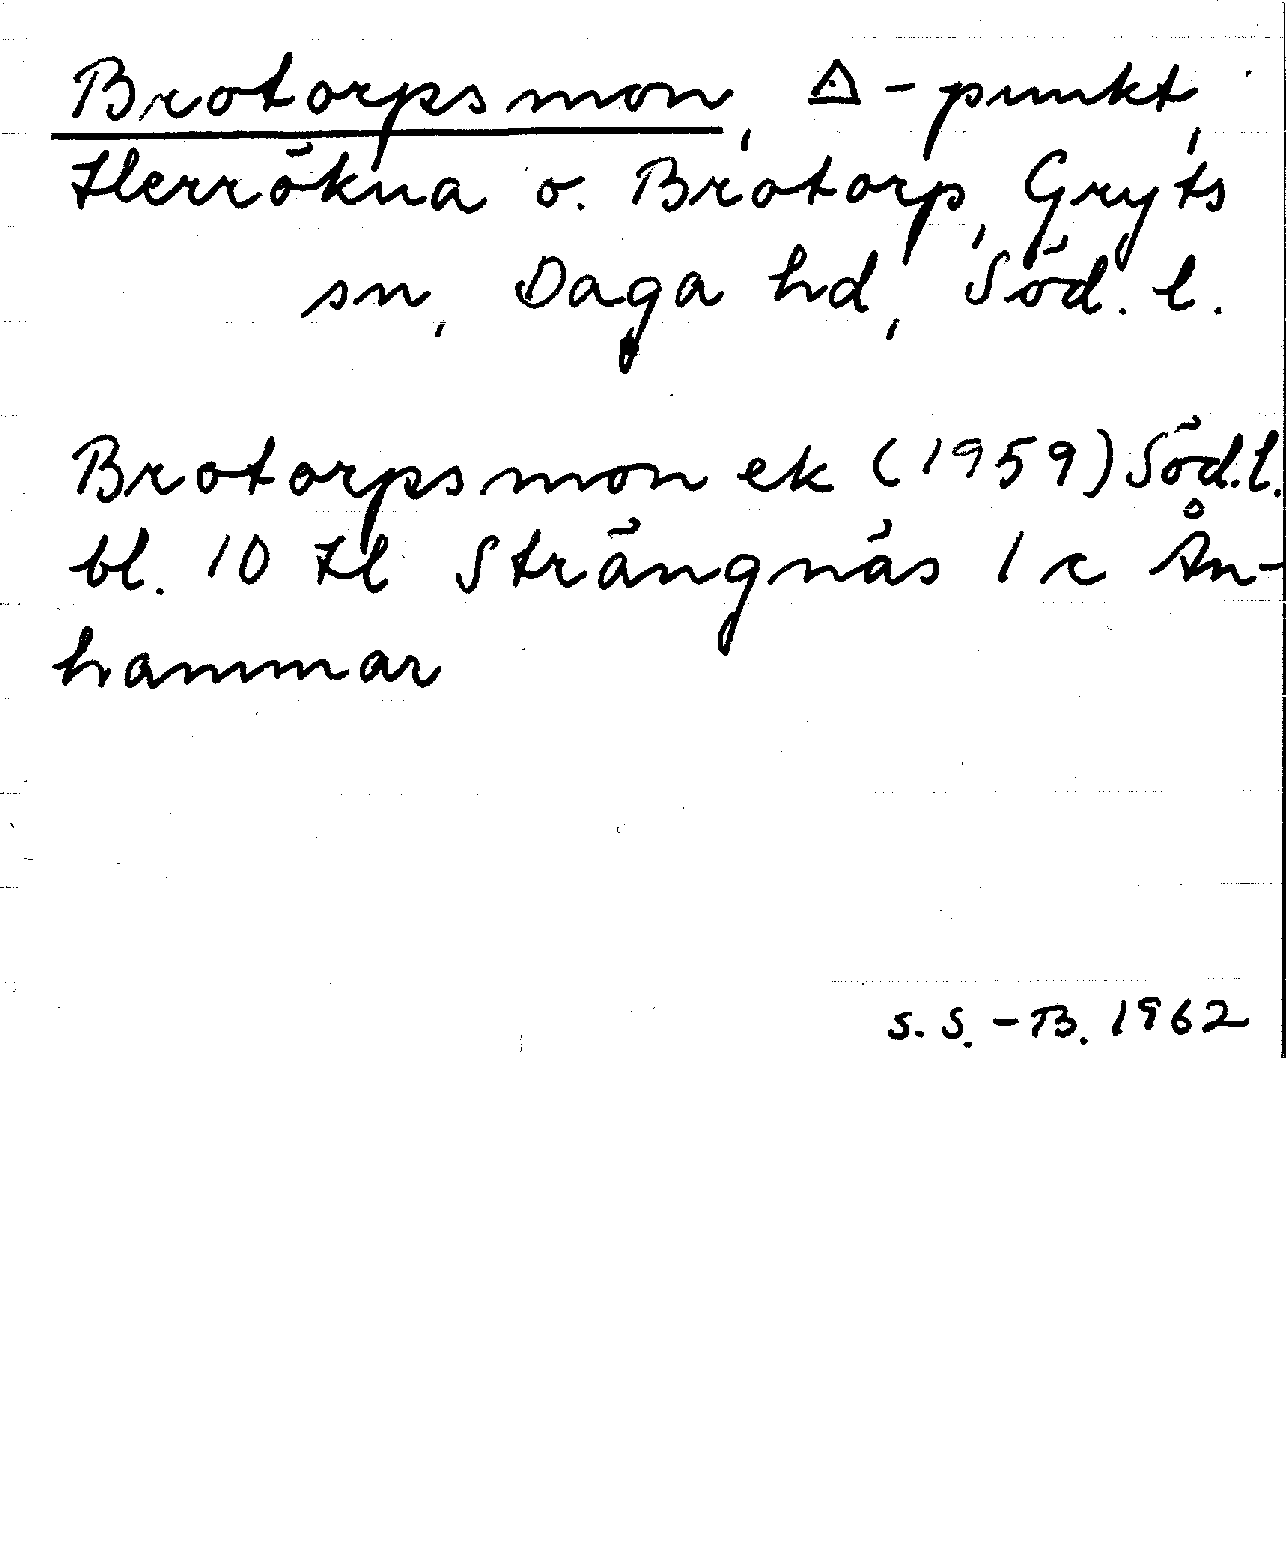 Brotorpsmon, △-punkt,
Herrökna o. Brotorp, Gryts
sn, Daga hd, Söd. l.
Brotorpsmon ek (1959) Söd. l.
bl. 10 H Strängnäs 1 c Ån-
hammar
S. S. - B. 1962